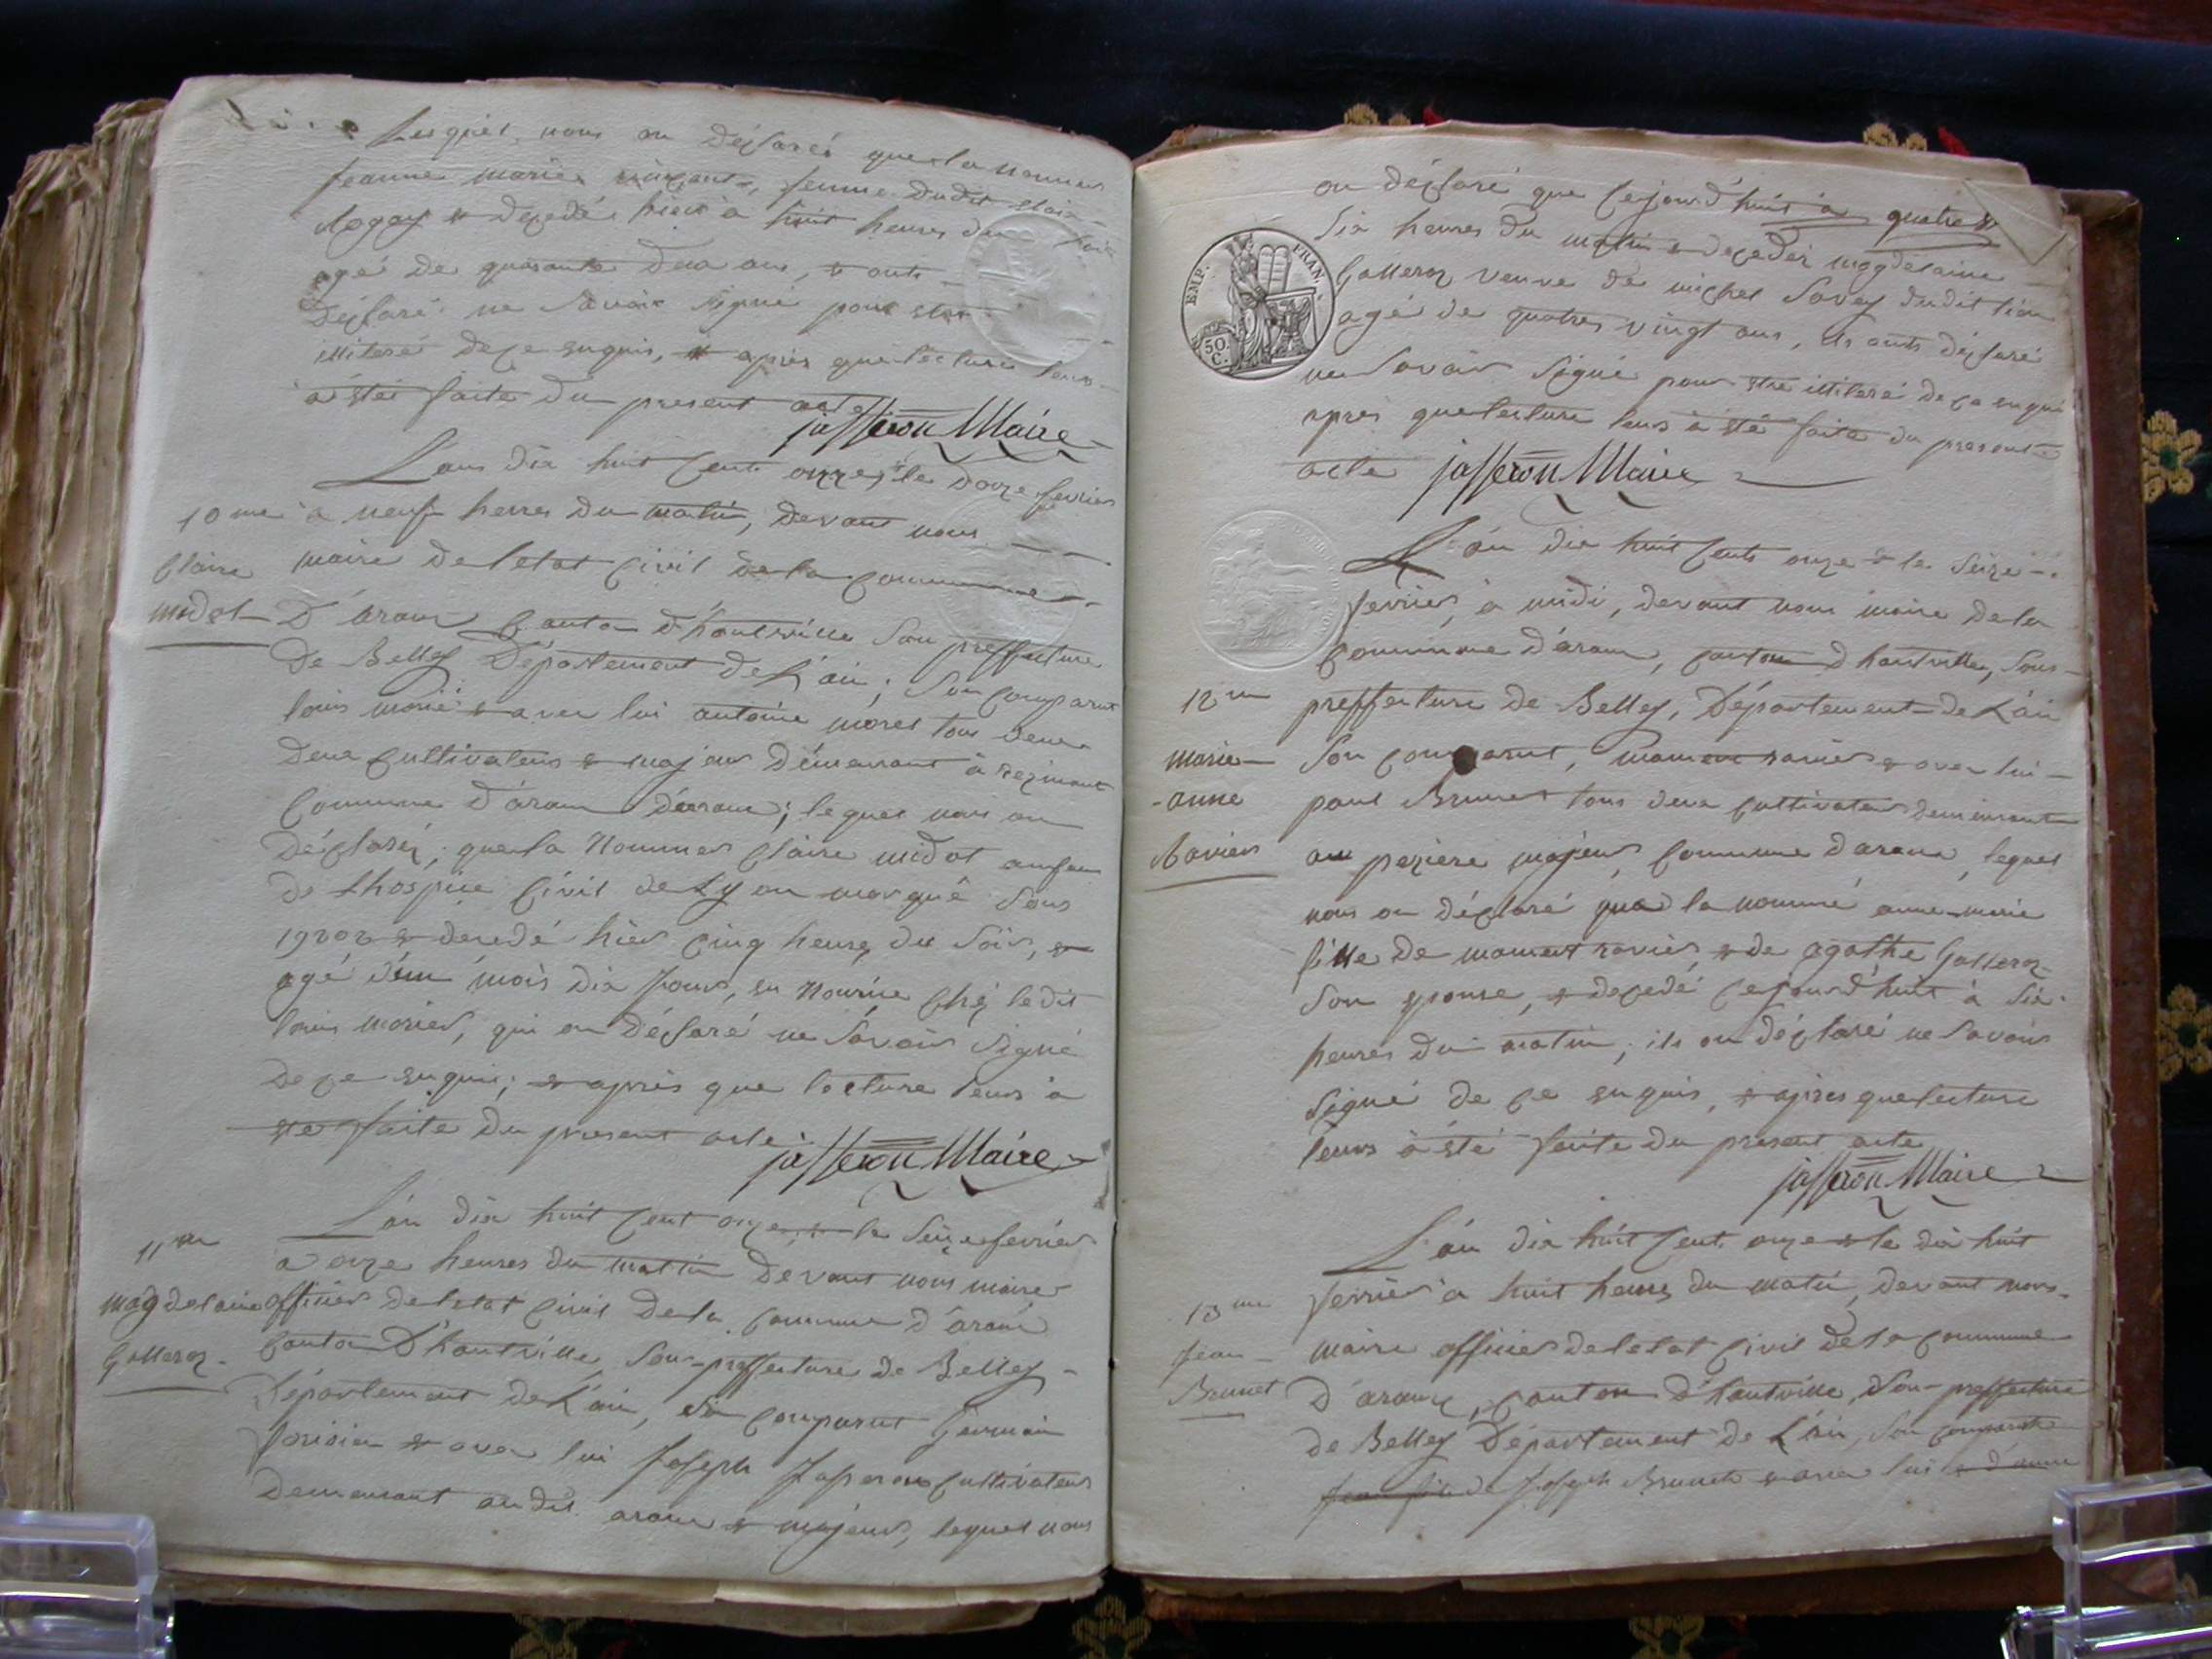 Lesquel nous on déclaré que la nommés
Jeanne marie femme dudit
& décédé hier à huit heures du soir
agé de quarante deux ans, & onts
déclaré ne savoir signé pour etre
illiteré de ce enquis, & après que lecture leurs
à étéi faite du present acte
jasseron Maire
L'ans dix huit cent onze, & le douze fevrier
10me à neuf heures du matin, devant nous
Claire maire de l'etat civil de la commune
midol D'aranc canton d'hauteville sou preffecture
de Belley Département de L'ain; Son comparut
louis moriei & avec lui antoine morel tous deux
deux cultivateurs & majeur démeurant à rezinant
commune d'áranc; lequel nous on
déclaréz; que la Nommés Claire midol enfans
de lhospice civil de Lyon marqué sous
& decedé hier cinq heures du soir, &
agé d'un mois dix jours, en Nourrice ché ledit
louis morier, qui on déclaré ne savoir signé
de ce enquis; & après que lecture leurs à
eté faite du present acte
jasseron Maire
L'án dix huit cent onze & le seize fevrier
11me à onze heures du matin devant nous maire
magdelaine officier de l'etat civil de la commune d'áranc
Galleroz canton D'hauteville, sou-preffecture de Belley
Département de L'ain, son comparut Germain
& avec lui Joseph Jasseron cultivateur
Demeurant au dit aranc & majeur, lequel nous
on déclaré que cejourd'huit à quatre &
EMP. FRAN.
50 C.
Six heures du matin & decedéz magdelaine
Galleroz veuve de michel Savey dudit lieu
agé de quatres vingt ans, ils onts déclaré
ne savoir signé pour etre illiteré de ce enqui
après que lecture leurs à été faite du presente
acte jasseron Maire
L'án dix huit cents onze & le seize
fevrier, à midi, devant nous maire de la
commune d'áranc, canton d'hautville, sous
12me preffecture de Belley, Département de L'ain
marie Son comparut, mament ravier & avec lui
anne paul Brunet tous deux cultivateur demeurant
Ravier au peziere majeur, commune d'aranc, lequel
nous on déclaré que la nommé anne-marie
fille de mament ravier, & de agathe Galleroz
Son epouse, & decedé cejourd'huit à six
heures du matin; ils on déclaré ne savoir
signé de ce enquis, & après que lecture
leurs à été faite du present acte
jasseron Maire
L'án dix huit cent onze & le dix huit
fevrier à huit heures du matin, devant nous
13me
Jean maire officier de l'etat civil de la commune
Brunet d'aranc, canton d'hautville, sou-preffecture
de Belley Département de L'ain, son comparut
Jean fils de Joseph Brunet & avec lui & d'anne